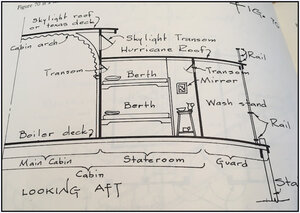 Figure 70 is a
FIG. 70
Skylight roof
or texas deck
Cabin arch
Skylight Transom
Hurricane Roof
Rail
Transom
Berth
Transom
Mirror
Berth
Wash stand
Rail
Boiler deck
Main Cabin
Stateroom
Guard
Cabin
LOOKING AFT